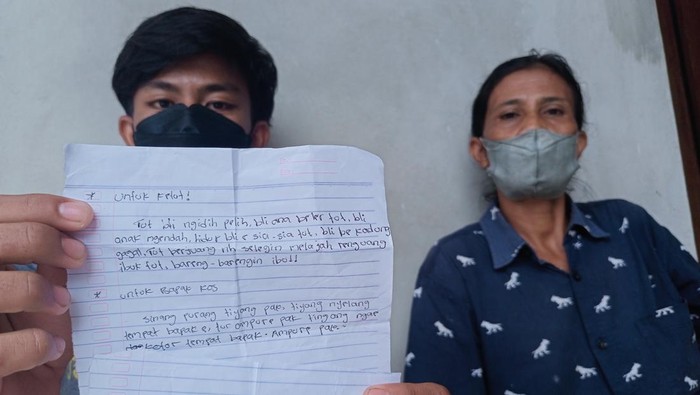 * Untuk Ketut!
Tut bli ngidih pelih, bli ana beler tut, bli
anak ngendah, hidur bli e sia-sia tut, bli be kadung
gagal. Tut berjuang nih selegin melajah
ibuk tut, bareng-barengin ibu!!
* Untuk Bapak Kos
tiyang pak, tiyang nyelang
tempat bapak e, tur ampure pak tiyang ngae
kotor tempat bapak. Ampure pak.